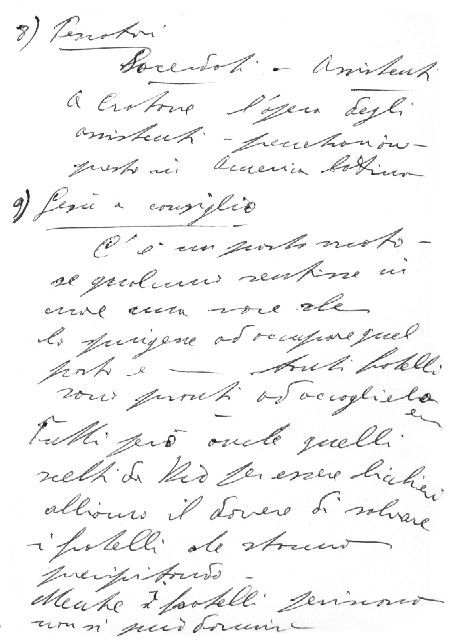 8) Pescatori
Sacerdoti - Assistenti
A Crotone l'opera degli
assistenti -
questo in America latina
9) Gesù a consiglio
C'è un posto vuoto -
se qualcuno sentisse in
cuore una voce che
lo spingesse ad occupare quel
posto e — tanti fratelli
sono pronti ad accoglierlo
Tutti però anche quelli
scelti da Dio per essere
abbiamo il dovere di salvare
i fratelli che stanno
precipitando -
Mentre i fratelli periscono
non si può dormire